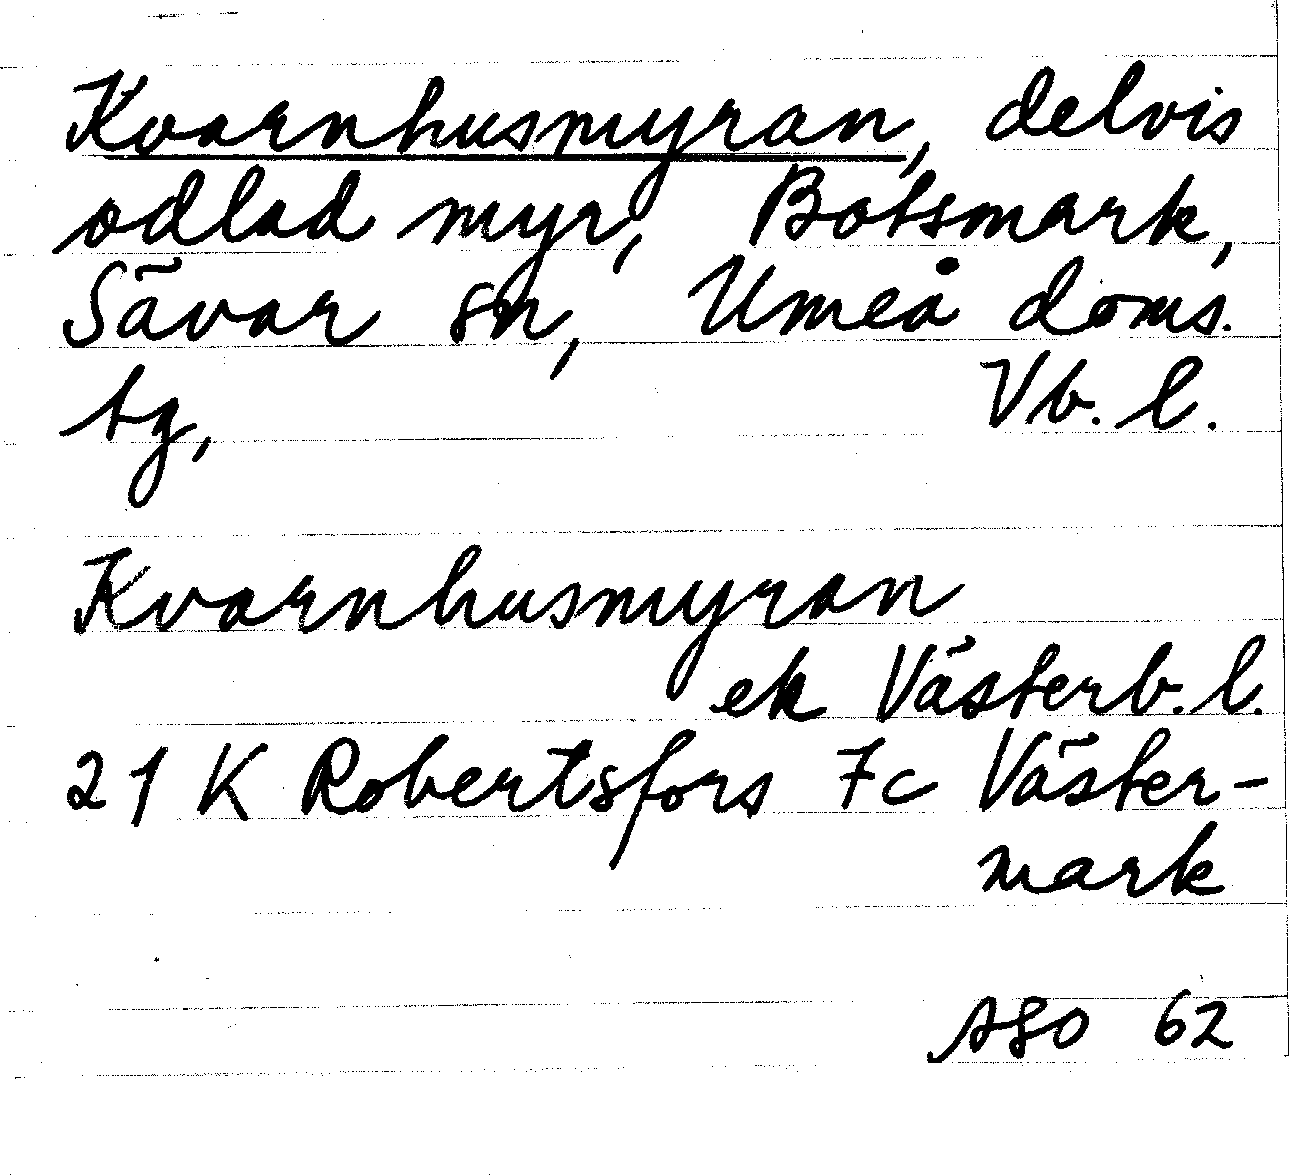 Kvarnhusmyran, delvis
odlad myr, Botsmark,
Sävar sn, Umeå doms.
tg, Vb. l.
Kvarnhusmyran
ek Västerb. l.
21 K Robertsfors 7c Väster-
mark
ASO 62